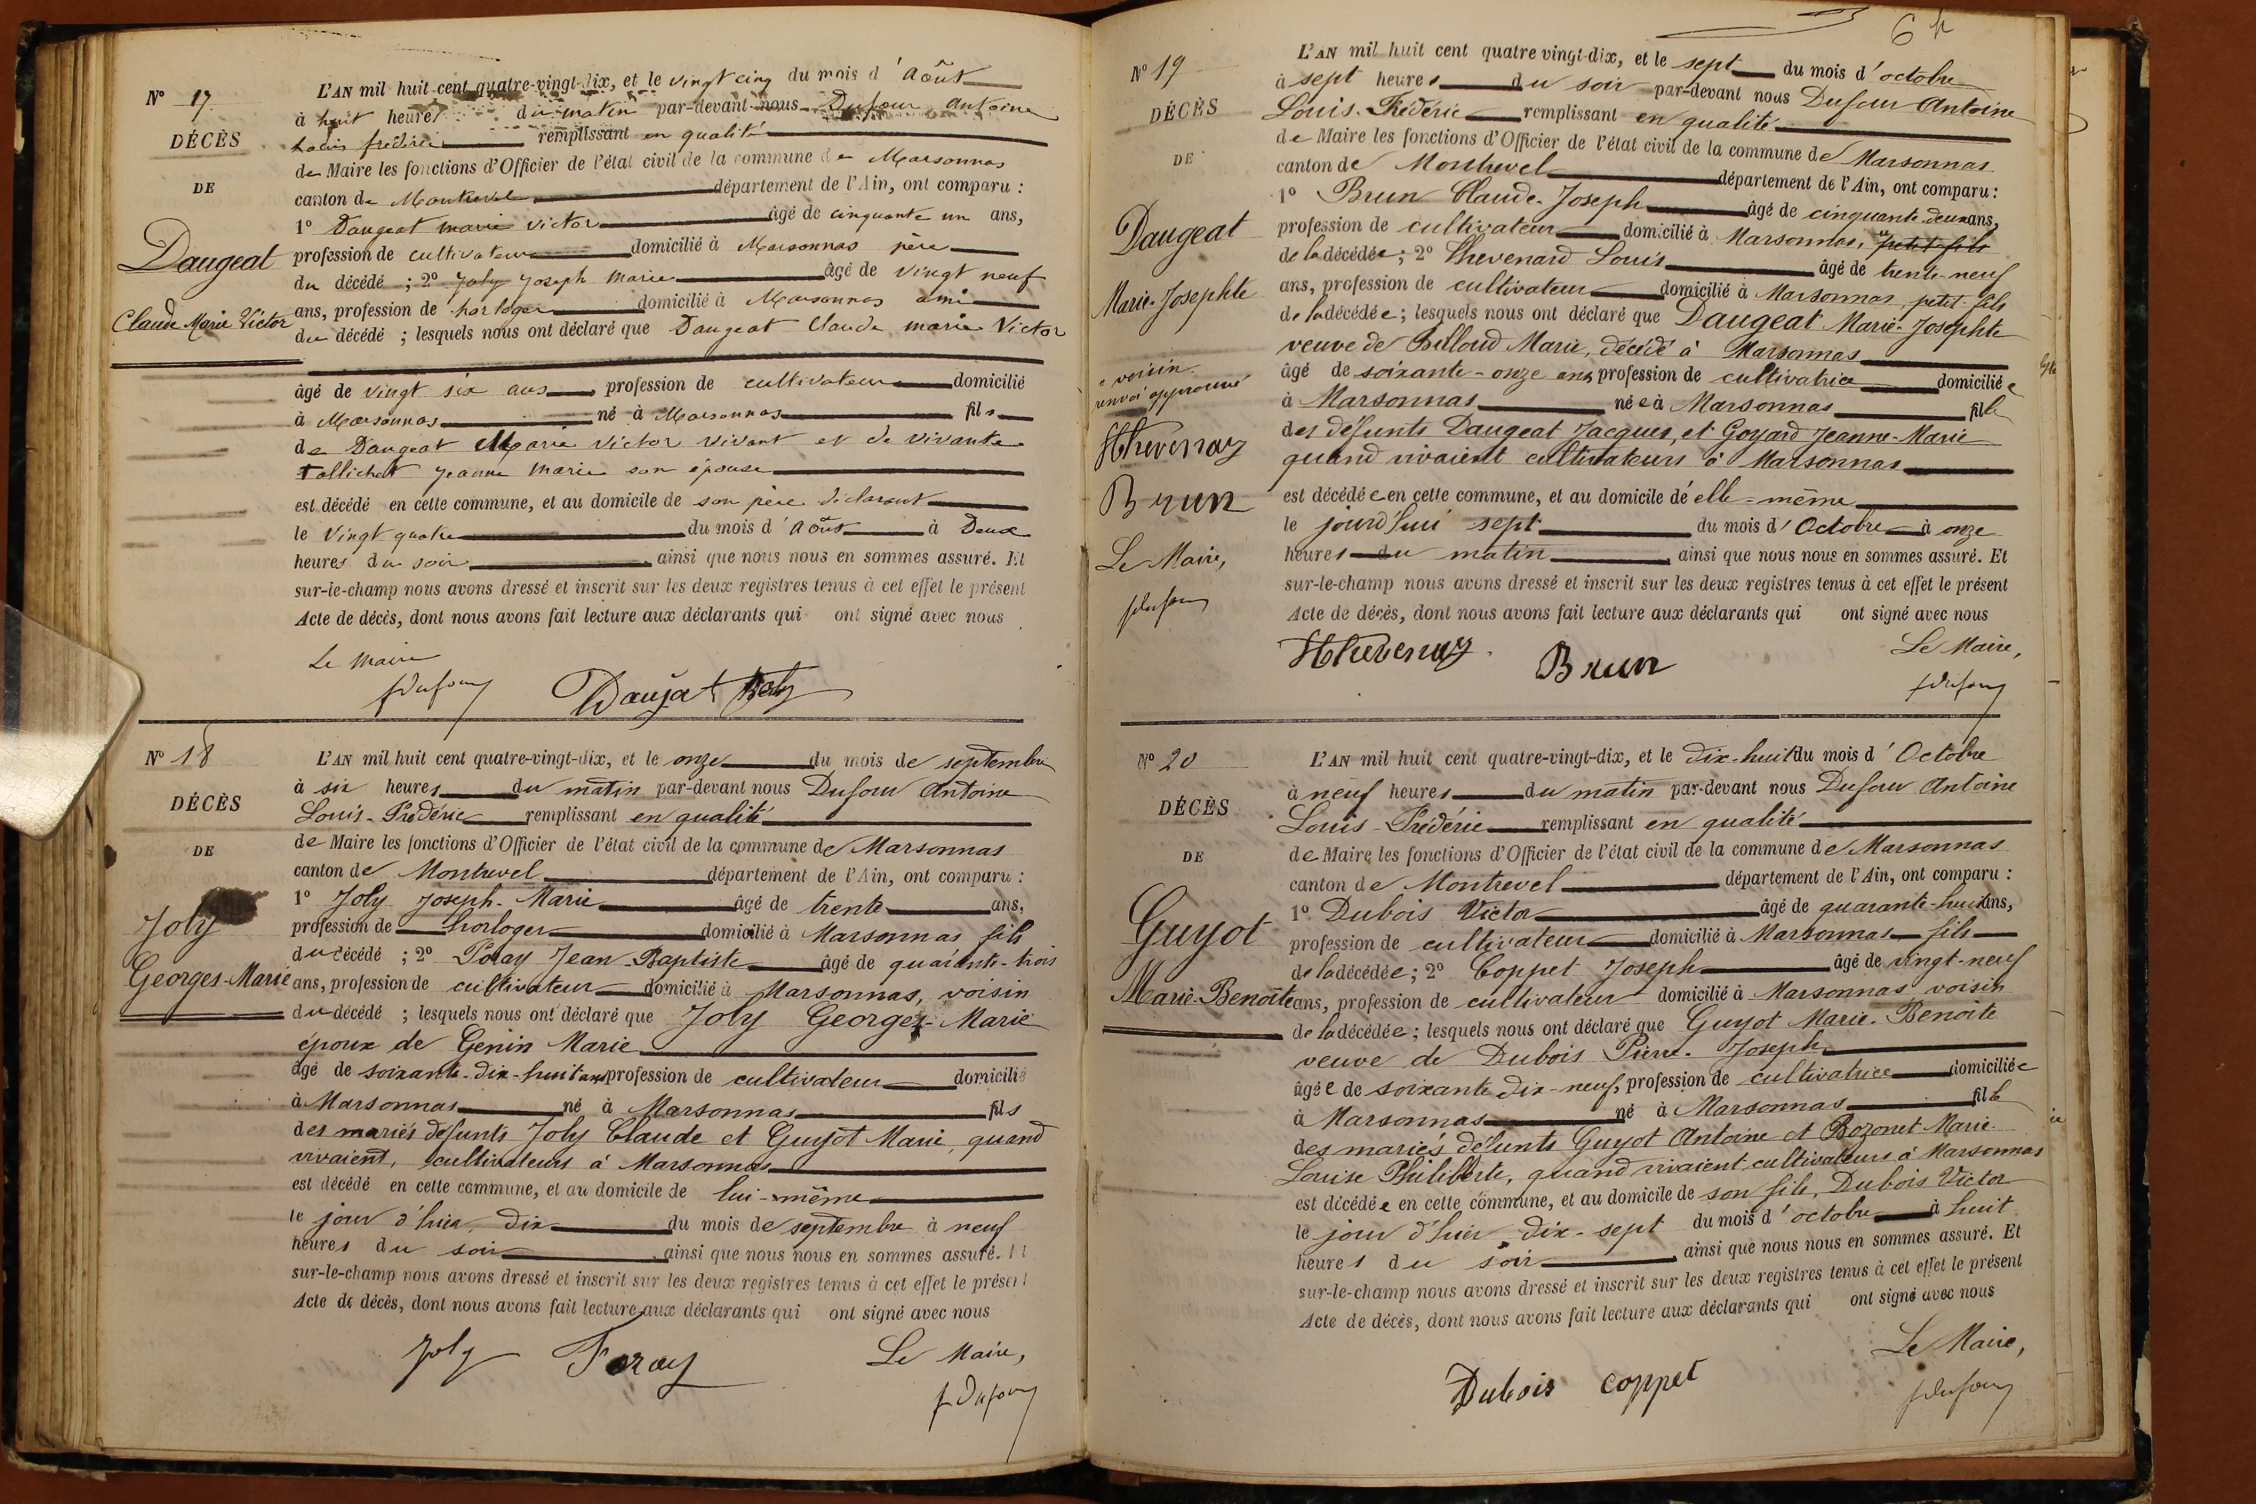 N° 17
DÉCÈS
DE
Daugeat
Claude Marie Victor
L'AN mil huit cent quatre-vingt-dix, et le vingt cinq du mois d'Août
à huit heures du matin par-devant nous Dufour Antoine
Louis frédéric remplissant en qualité
de Maire les fonctions d'Officier de l'état civil de la commune de Marsonnas
canton de Montrevel département de l'Ain, ont comparu :
1° Daugeat marie victor âgé de cinquante un ans,
profession de cultivateur domicilié à Marsonnas père
du décédé ; 2° Joly Joseph Marie âgé de vingt neuf
ans, profession de horloger domicilié à Marsonnas ami
du décédé ; lesquels nous ont déclaré que Daugeat Claude marie Victor
âgé de vingt six ans profession de cultivateur domicilié
à Marsonnas né à Marsonnas fils
de Daugeat Marie Victor vivant et de vivante
Tallichet jeanne marie son épouse
est décédé en cette commune, et au domicile de son père déclarant
le vingt quatre du mois d'Août à Deux
heures du soir ainsi que nous nous en sommes assuré. Et
sur-le-champ nous avons dressé et inscrit sur les deux registres tenus à cet effet le présent
Acte de décès, dont nous avons fait lecture aux déclarants qui ont signé avec nous
Le Maire
fDufour Daujat Joly
N° 18
DÉCÈS
DE
Joly
Georges-Marie
L'AN mil huit cent quatre-vingt-dix, et le onze du mois de septembre
à six heures du matin par-devant nous Dufour Antoine
Louis-Frédéric remplissant en qualité
de Maire les fonctions d'Officier de l'état civil de la commune de Marsonnas
canton de Montrevel département de l'Ain, ont comparu :
1° Joly Joseph-Marie âgé de trente ans,
profession de horloger domicilié à Marsonnas fils
du décédé ; 2° Foray Jean-Baptiste âgé de quarante-trois
ans, profession de cultivateur domicilié à Marsonnas, voisin
du décédé ; lesquels nous ont déclaré que Joly Georges-Marie
époux de Genin Marie
âgé de soixante-dix-huit ans profession de cultivateur domicilié
à Marsonnas né à Marsonnas fils
des mariés défunts Joly Claude et Guyot Marie, quand
vivaient, cultivateurs à Marsonnas
est décédé en cette commune, et au domicile de lui-même
le jour d'hier, dix du mois de septembre à neuf
heures du soir ainsi que nous nous en sommes assuré. Et
sur-le-champ nous avons dressé et inscrit sur les deux registres tenus à cet effet le présent
Acte de décès, dont nous avons fait lecture aux déclarants qui ont signé avec nous
Joly Foray Le Maire,
fDufour
N° 19
DÉCÈS
DE
Daugeat
Marie-Josephte
voisin
renvoi approuvé
Hthevenay
Brun
Le Maire,
fDufour
L'AN mil huit cent quatre vingt-dix, et le sept du mois d'octobre
à sept heures du soir par-devant nous Dufour Antoine
Louis-Frédéric remplissant en qualité
de Maire les fonctions d'Officier de l'état civil de la commune de Marsonnas
canton de Montrevel département de l'Ain, ont comparu :
1° Brun Claude-Joseph âgé de cinquante-deux ans,
profession de cultivateur domicilié à Marsonnas, petit-fils
de la décédée ; 2° Thevenard Louis âgé de trente-neuf
ans, profession de cultivateur domicilié à Marsonnas petit-fils
de la décédée ; lesquels nous ont déclaré que Daugeat Marie-Josephte
veuve de Billoud Marie, décédé à Marsonnas
âgé de soixante-onze ans profession de cultivatrice domiciliée
à Marsonnas née à Marsonnas fille
des défunts Daugeat Jacques, et Goyard Jeanne-Marie
quand vivaient cultivateurs à Marsonnas
est décédée en cette commune, et au domicile d'elle-même
le jourd'hui sept du mois d'Octobre à onze
heures du matin ainsi que nous nous en sommes assuré. Et
sur-le-champ nous avons dressé et inscrit sur les deux registres tenus à cet effet le présent
Acte de décès, dont nous avons fait lecture aux déclarants qui ont signé avec nous
Hthevenay Brun Le Maire,
fDufour
N° 20
DÉCÈS
DE
Guyot
Marie-Benoîte
L'AN mil huit cent quatre-vingt-dix, et le dix-huit du mois d'Octobre
à neuf heures du matin par-devant nous Dufour Antoine
Louis-Frédéric remplissant en qualité
de Maire les fonctions d'Officier de l'état civil de la commune de Marsonnas
canton de Montrevel département de l'Ain, ont comparu :
1° Dubois Victor âgé de quarante-huit ans,
profession de cultivateur domicilié à Marsonnas fils
de la décédée ; 2° Coppet Joseph âgé de vingt-neuf
ans, profession de cultivateur domicilié à Marsonnas voisin
de la décédée ; lesquels nous ont déclaré que Guyot Marie-Benoîte
veuve de Dubois Pierre-Joseph
âgée de soixante dix-neuf, profession de cultivatrice domiciliée
à Marsonnas né à Marsonnas fille
des mariés défunts Guyot Antoine et Bozonet Marie-
Louise Philiberte, quand vivaient cultivateurs à Marsonnas
est décédée en cette commune, et au domicile de son fils, Dubois Victor
le jour d'hier dix-sept du mois d'octobre à huit
heures du soir ainsi que nous nous en sommes assuré. Et
sur-le-champ nous avons dressé et inscrit sur les deux registres tenus à cet effet le présent
Acte de décès, dont nous avons fait lecture aux déclarants qui ont signé avec nous
Le Maire,
Dubois Coppet fDufour